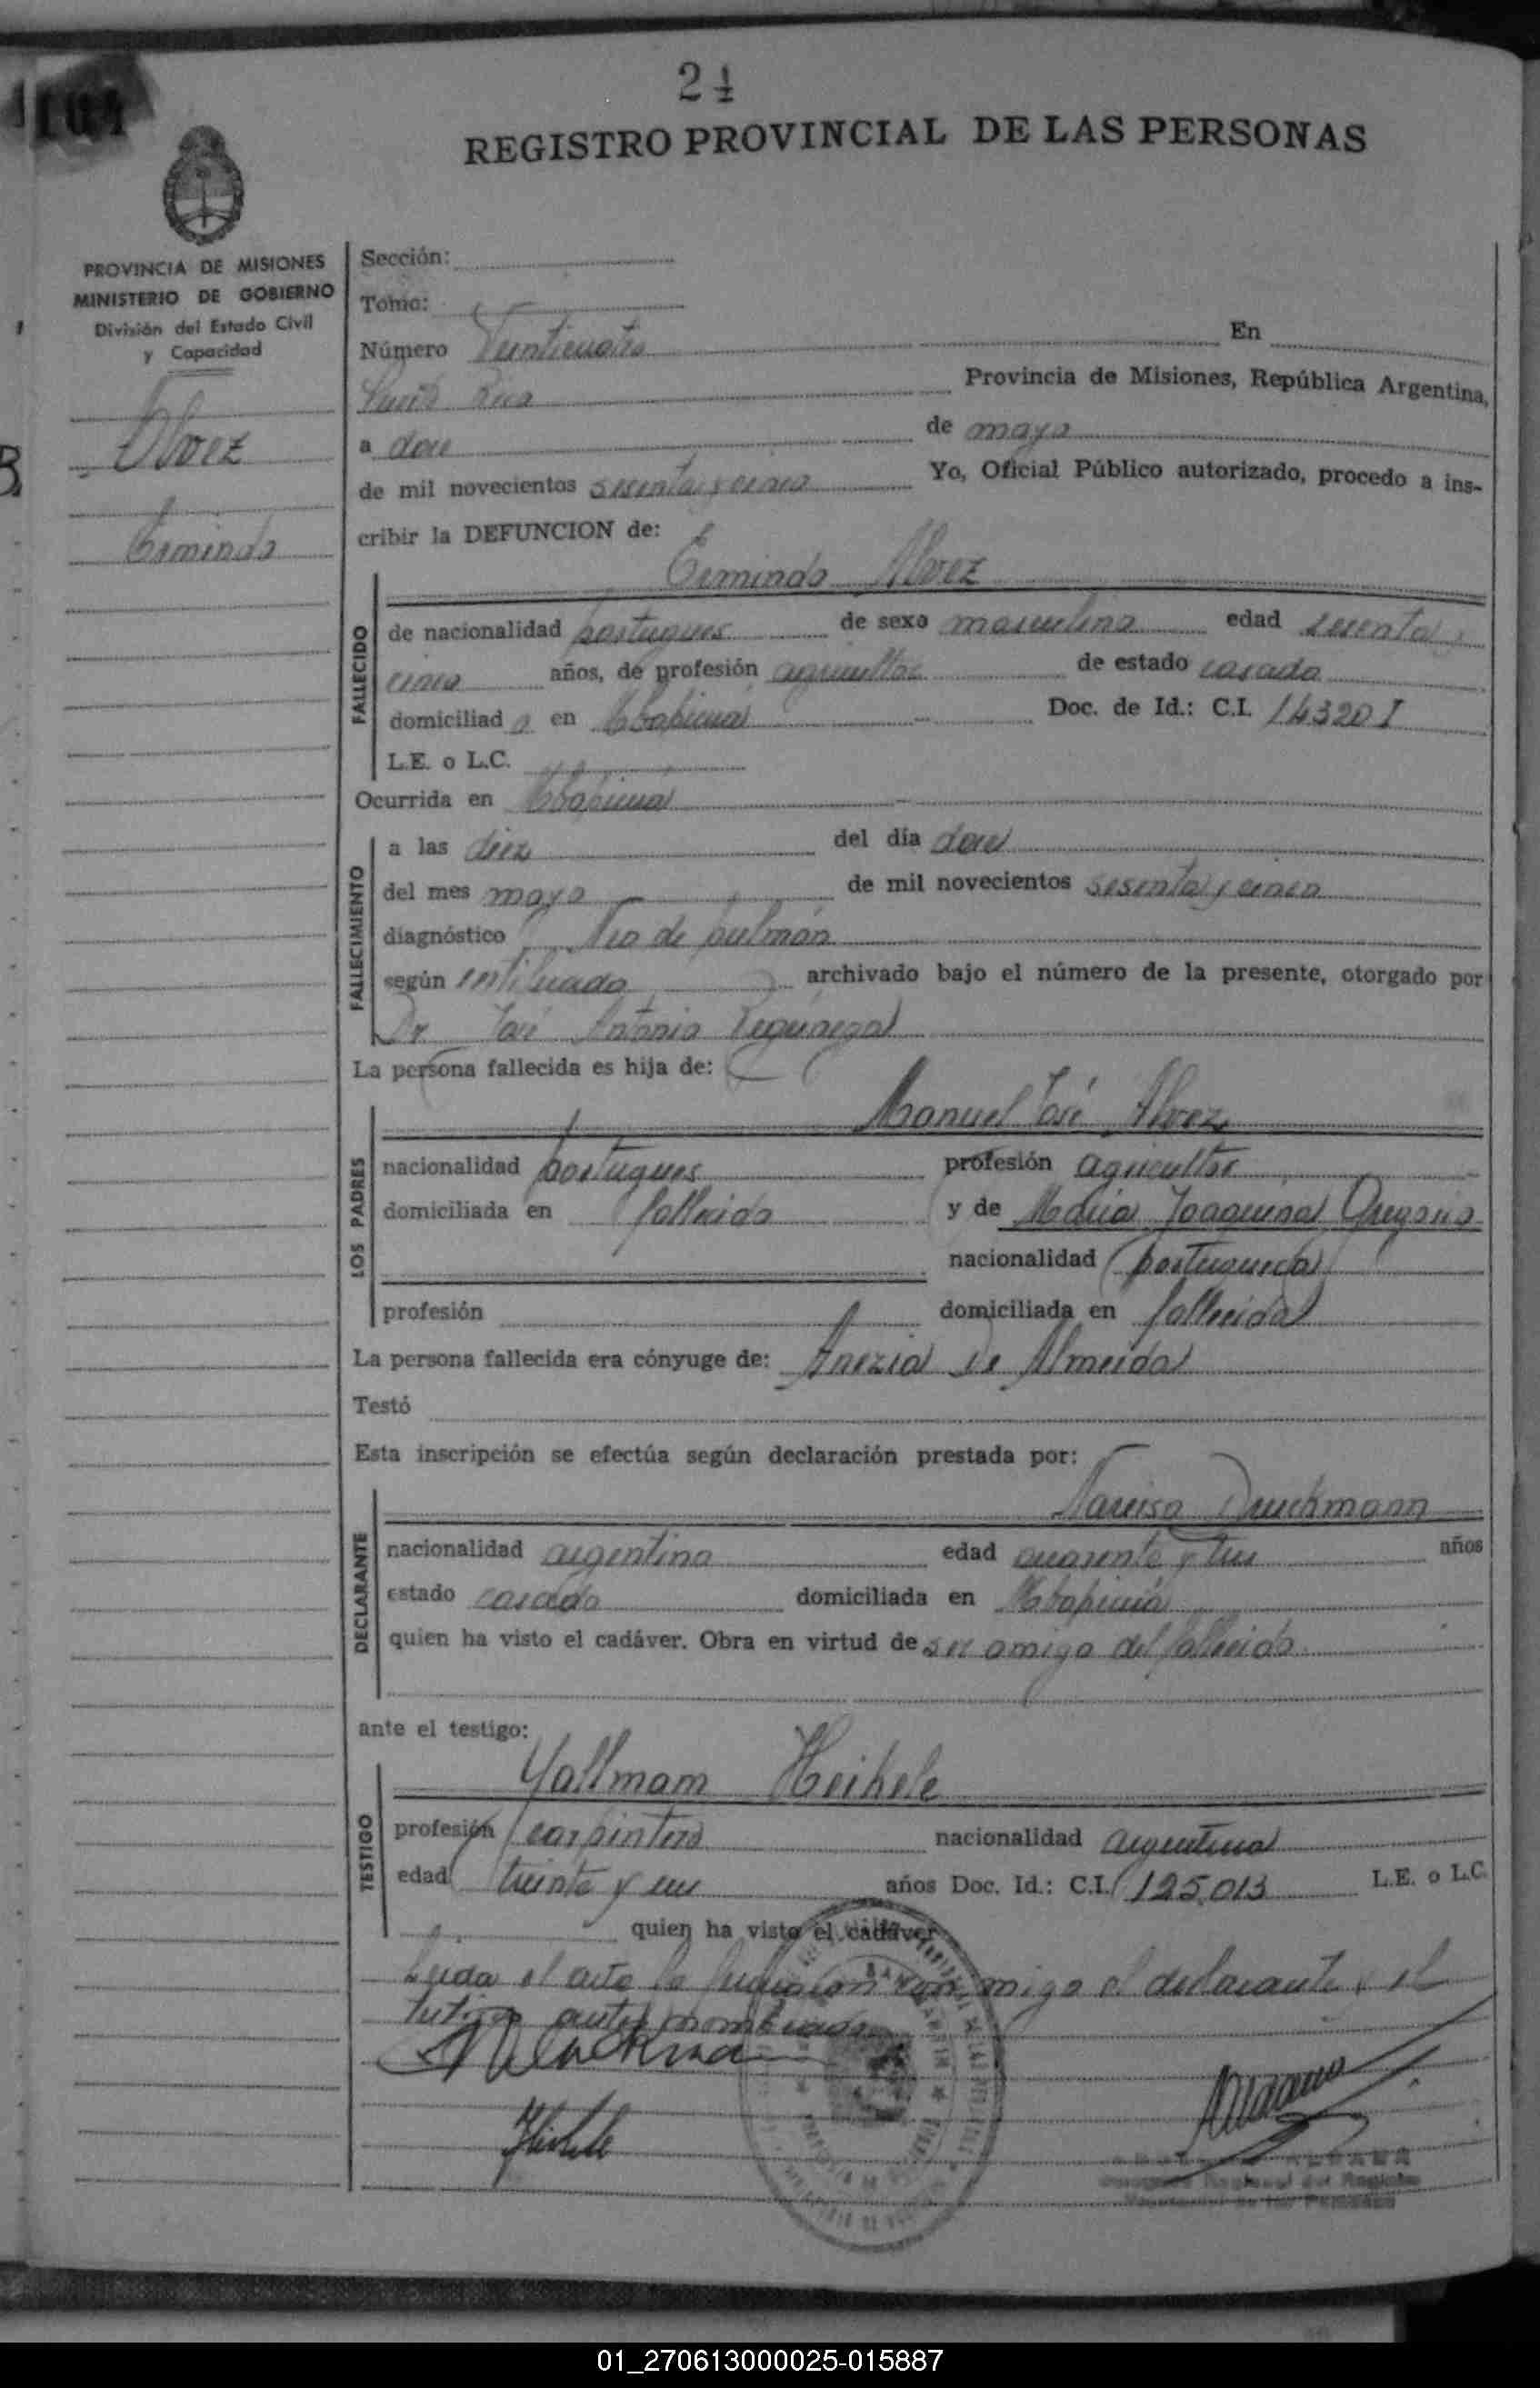 2 1/2
REGISTRO PROVINCIAL DE LAS PERSONAS
PROVINCIA DE MISIONES
MINISTERIO DE GOBIERNO
División del Estado Civil
y Capacidad
Alvez
Ermindo
Sección:
Tomo:
Número Veinticuatro En
Puerto Rico Provincia de Misiones, República Argentina,
a doce de mayo
de mil novecientos sesenta y cinco Yo, Oficial Público autorizado, procedo a ins-
cribir la DEFUNCION de:
Ermindo Alvez
FALLECIDO
de nacionalidad portugues de sexo masculino edad sesenta y
cinco años, de profesión agricultor de estado casado
domiciliad o en Mbopicuá Doc. de Id.: C.I. 143201
L.E. o L.C.
Ocurrida en Mbopicuá
FALLECIMIENTO
a las diez del día doce
del mes mayo de mil novecientos sesenta y cinco
diagnóstico Neo de pulmón
según certificado archivado bajo el número de la presente, otorgado por
Dr. José Antonio
La persona fallecida es hija de:
Manuel José Alvez
LOS PADRES
nacionalidad portugues profesión agricultor
domiciliada en fallecido y de Maria Joaquina Gregorio
nacionalidad portuguesa
profesión domiciliada en fallecida
La persona fallecida era cónyuge de: Anezia De Almeida
Testó
Esta inscripción se efectúa según declaración prestada por:
Narciso Druchmann
DECLARANTE
nacionalidad argentino edad cuarenta y tres años
estado casado domiciliada en Mbopicuá
quien ha visto el cadáver. Obra en virtud de ser amigo del fallecido
ante el testigo:
Yallmam Heihele
TESTIGO
profesión carpintero nacionalidad argentina
edad treinta y un años Doc. Id.: C.I. 125.013 L.E. o L.C.
quien ha visto el cadáver
Leida el acta la firmaron conmigo el declarante y el
testigo antes nombrados
01_270613000025-015887